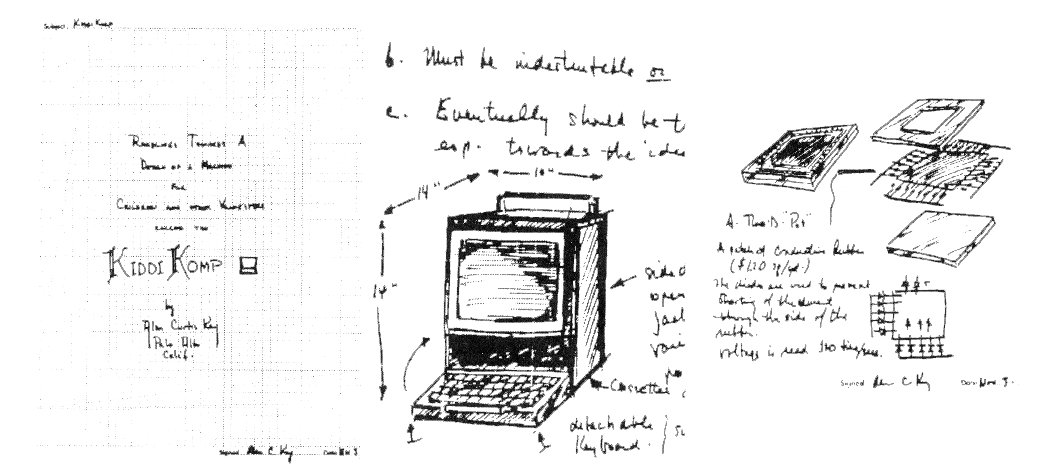 Subject: Kiddi Komp
Ramblings Towards A
Design of a Machine
For
Children and other
called the
KIDDI KOMP
by
Alan Curtis Kay
Palo Alto
Calif.
Signed Alan C Kay Date Nov 3
b. Must be indestructable or
c. Eventually should be t
esp. towards the idea
14"
10"
14"
side o
open
jack
Cassettes
detachable
Keyboard.
A Two-D "Pot"
A patch of Conductive Rubber
The diodes are used to prevent
Shorting of the
through the side of the
rubber.
Voltage is read
Signed Alan C Kay Date Nov 3.